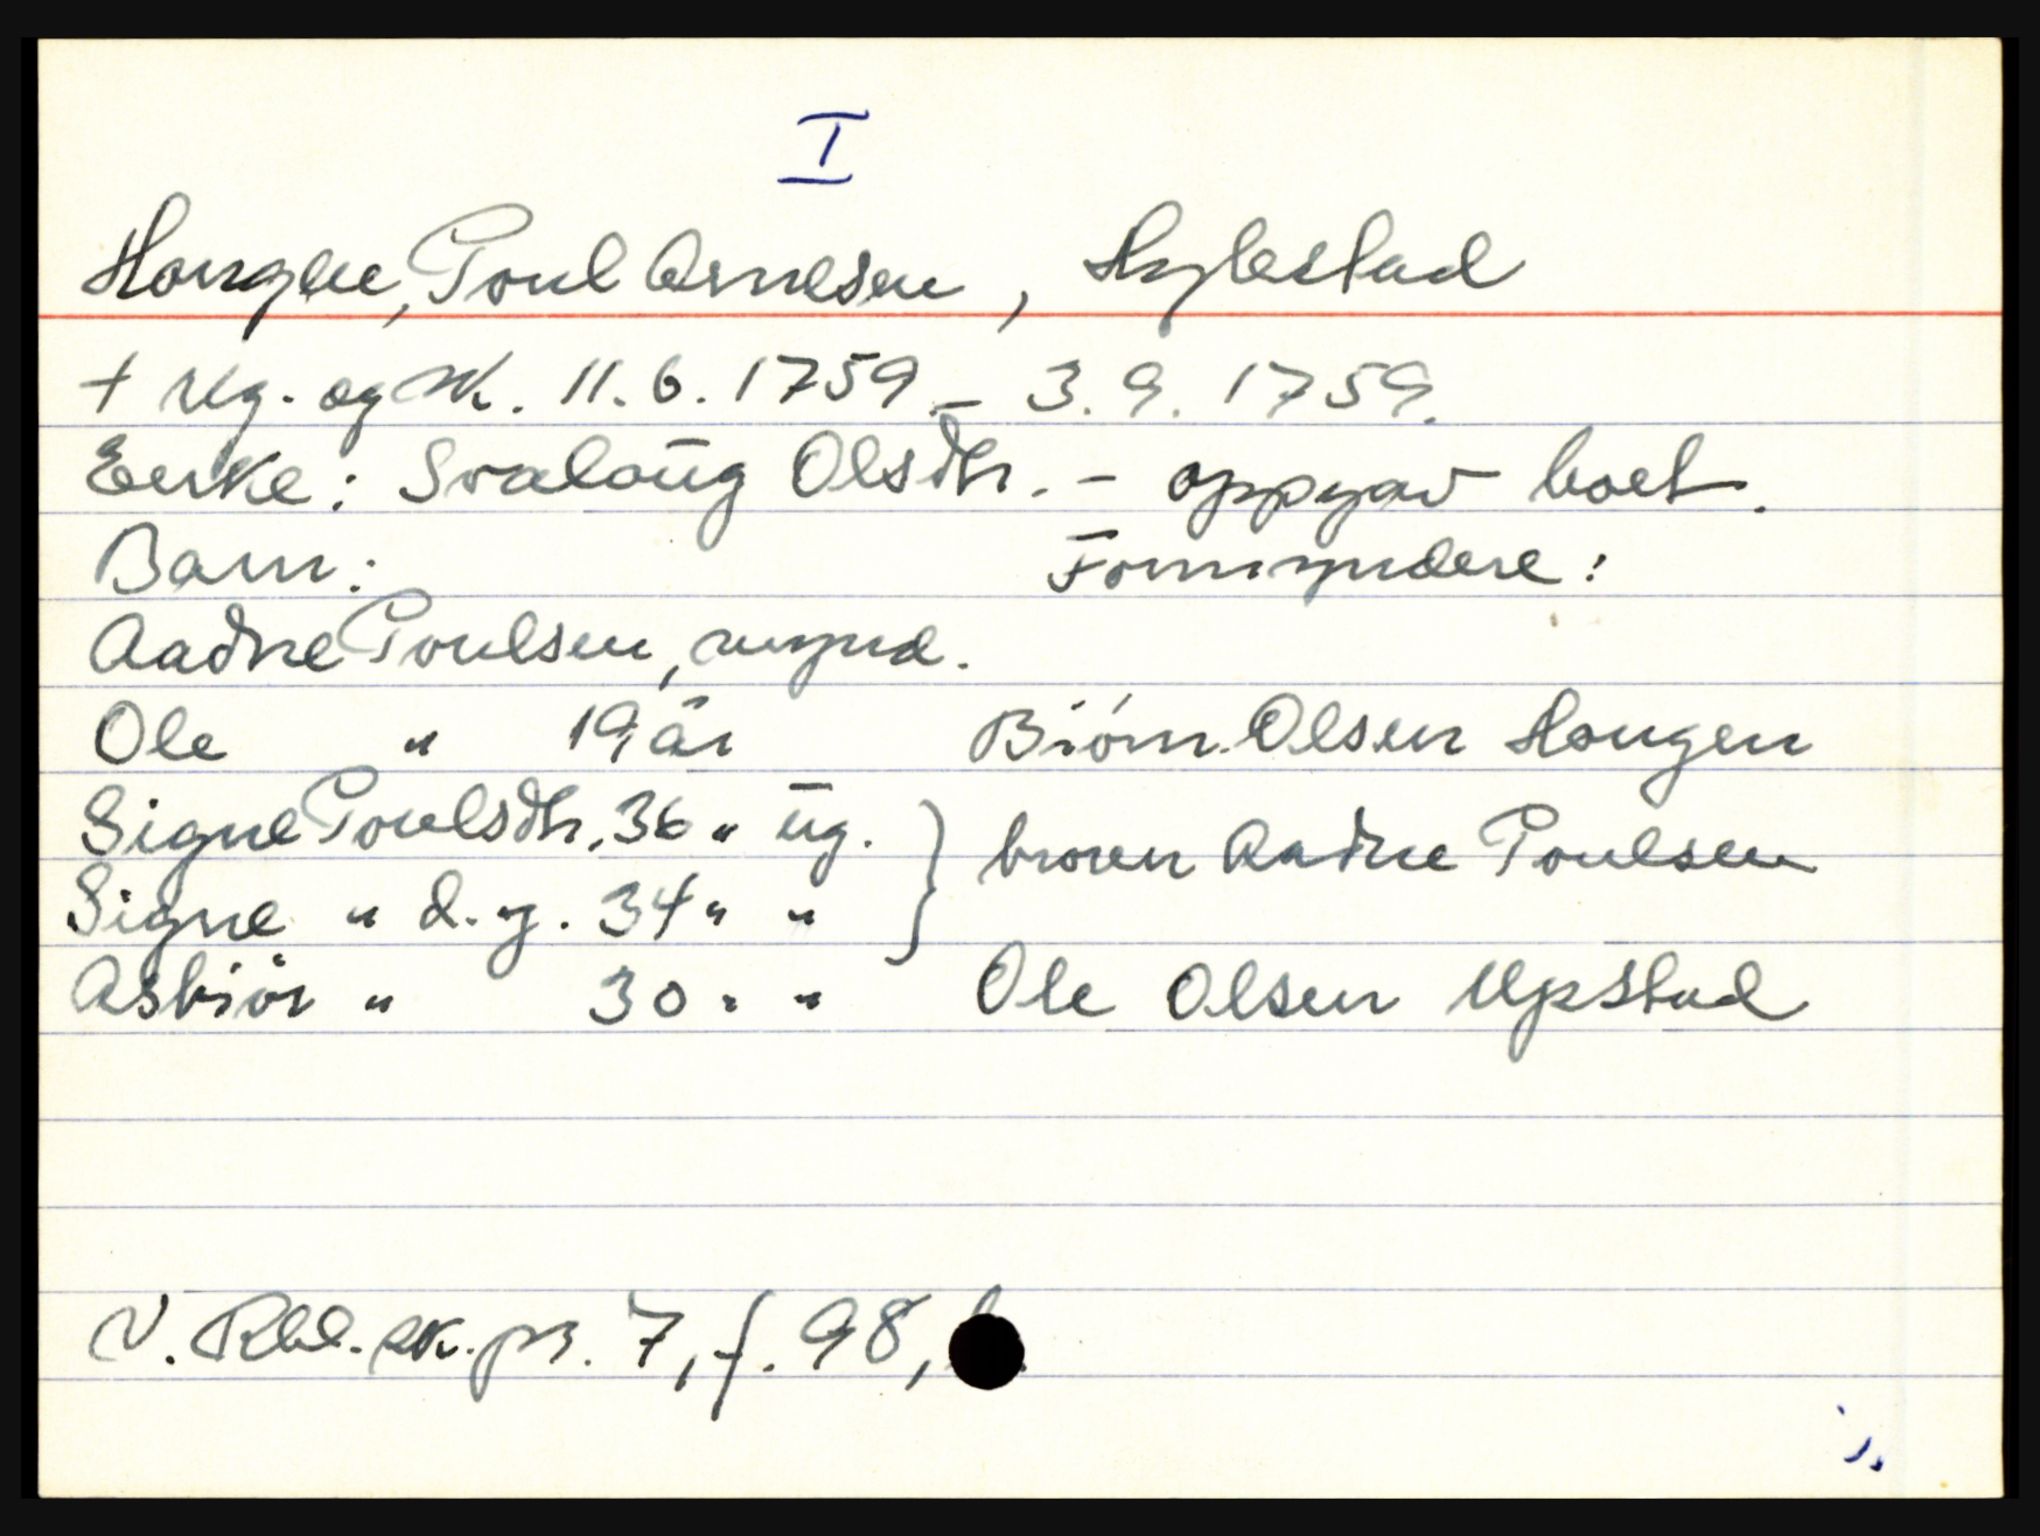 I
Hougen, Poul Arnesen, Hylestad
+ Rg. og sk. 11.6.1759. – 3.9.1759.
Enke: Svaloŭg Olsdtr. – oppgav boet.
Barn: Formyndere:
Aadne Poulsen, mynd.
Ole " 19 år Biórn Olsen Hougen
Signe Poulsdtr. 36 " ŭg. } broren Aadne Poulsen
Signe " d.y. 34 " "
Asbiör " 30 " " Ole Olsen Upstad
V. Rbd. sk.pr. 7, f. 98,